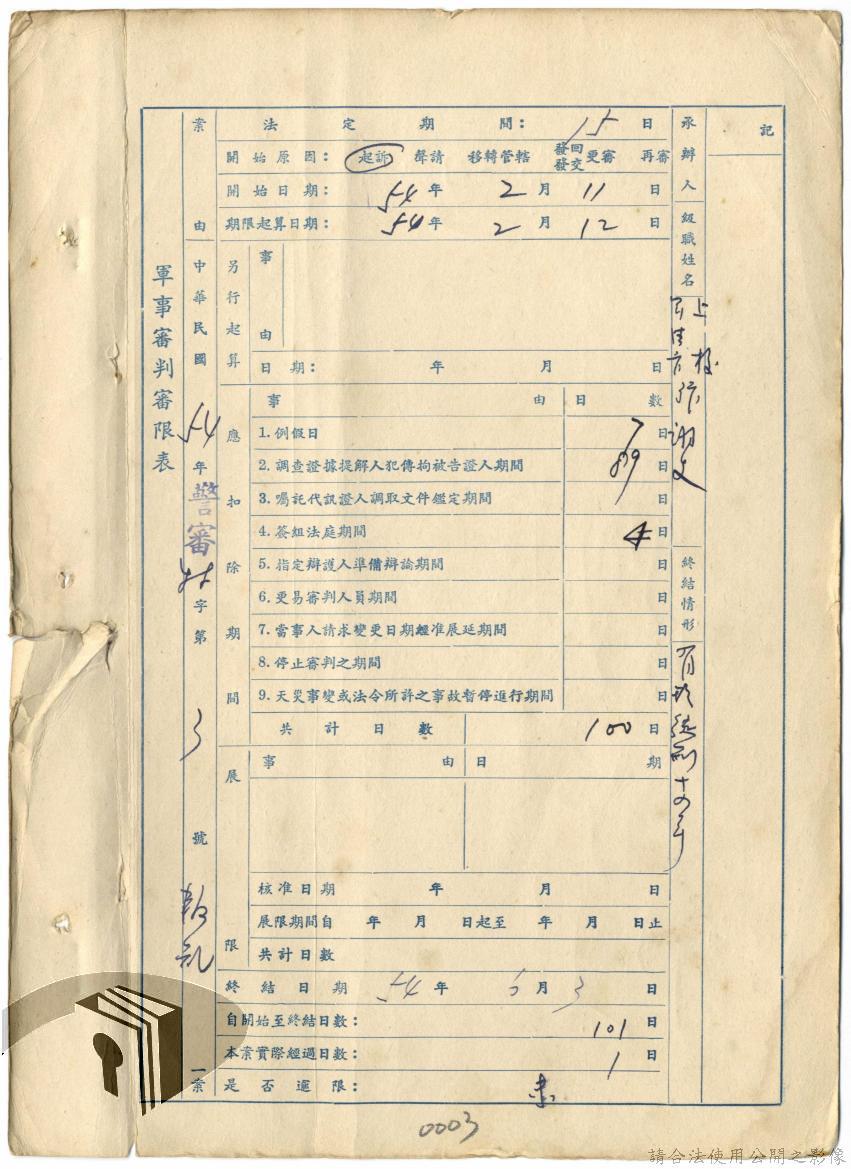 記
承辦人級職姓名
上校
終結情形
有期徒刑十四年
法定期間： 15 日
開始原因： 起訴 聲請 移轉管轄 發回發交更審 再審
開始日期： 54 年 2 月 11 日
期限起算日期： 54 年 2 月 12 日
另行起算
事由
日期： 年 月 日
應扣除期間
事由 日數
1. 例假日 7 日
2. 調查證據提解人犯傳拘被告證人期間 89 日
3. 囑託代訊證人調取文件鑑定期間 日
4. 簽組法庭期間 4 日
5. 指定辯護人準備辯論期間 日
6. 更易審判人員期間 日
7. 當事人請求變更日期經准展延期間 日
8. 停止審判之期間 日
9. 天災事變或法令所許之事故暫停進行期間 日
共計日數 100 日
展限
事由 日期
核准日期 年 月 日
展限期間自 年 月 日起至 年 月 日止
共計日數
終結日期 54 年 月 3 日
自開始至終結日數： 101 日
本案實際經過日數： 1 日
是否逾限： 未
案由 中華民國 54 年 警審 字第 3 號 叛亂 一案
軍事審判審限表
0003
請合法使用公開之影像